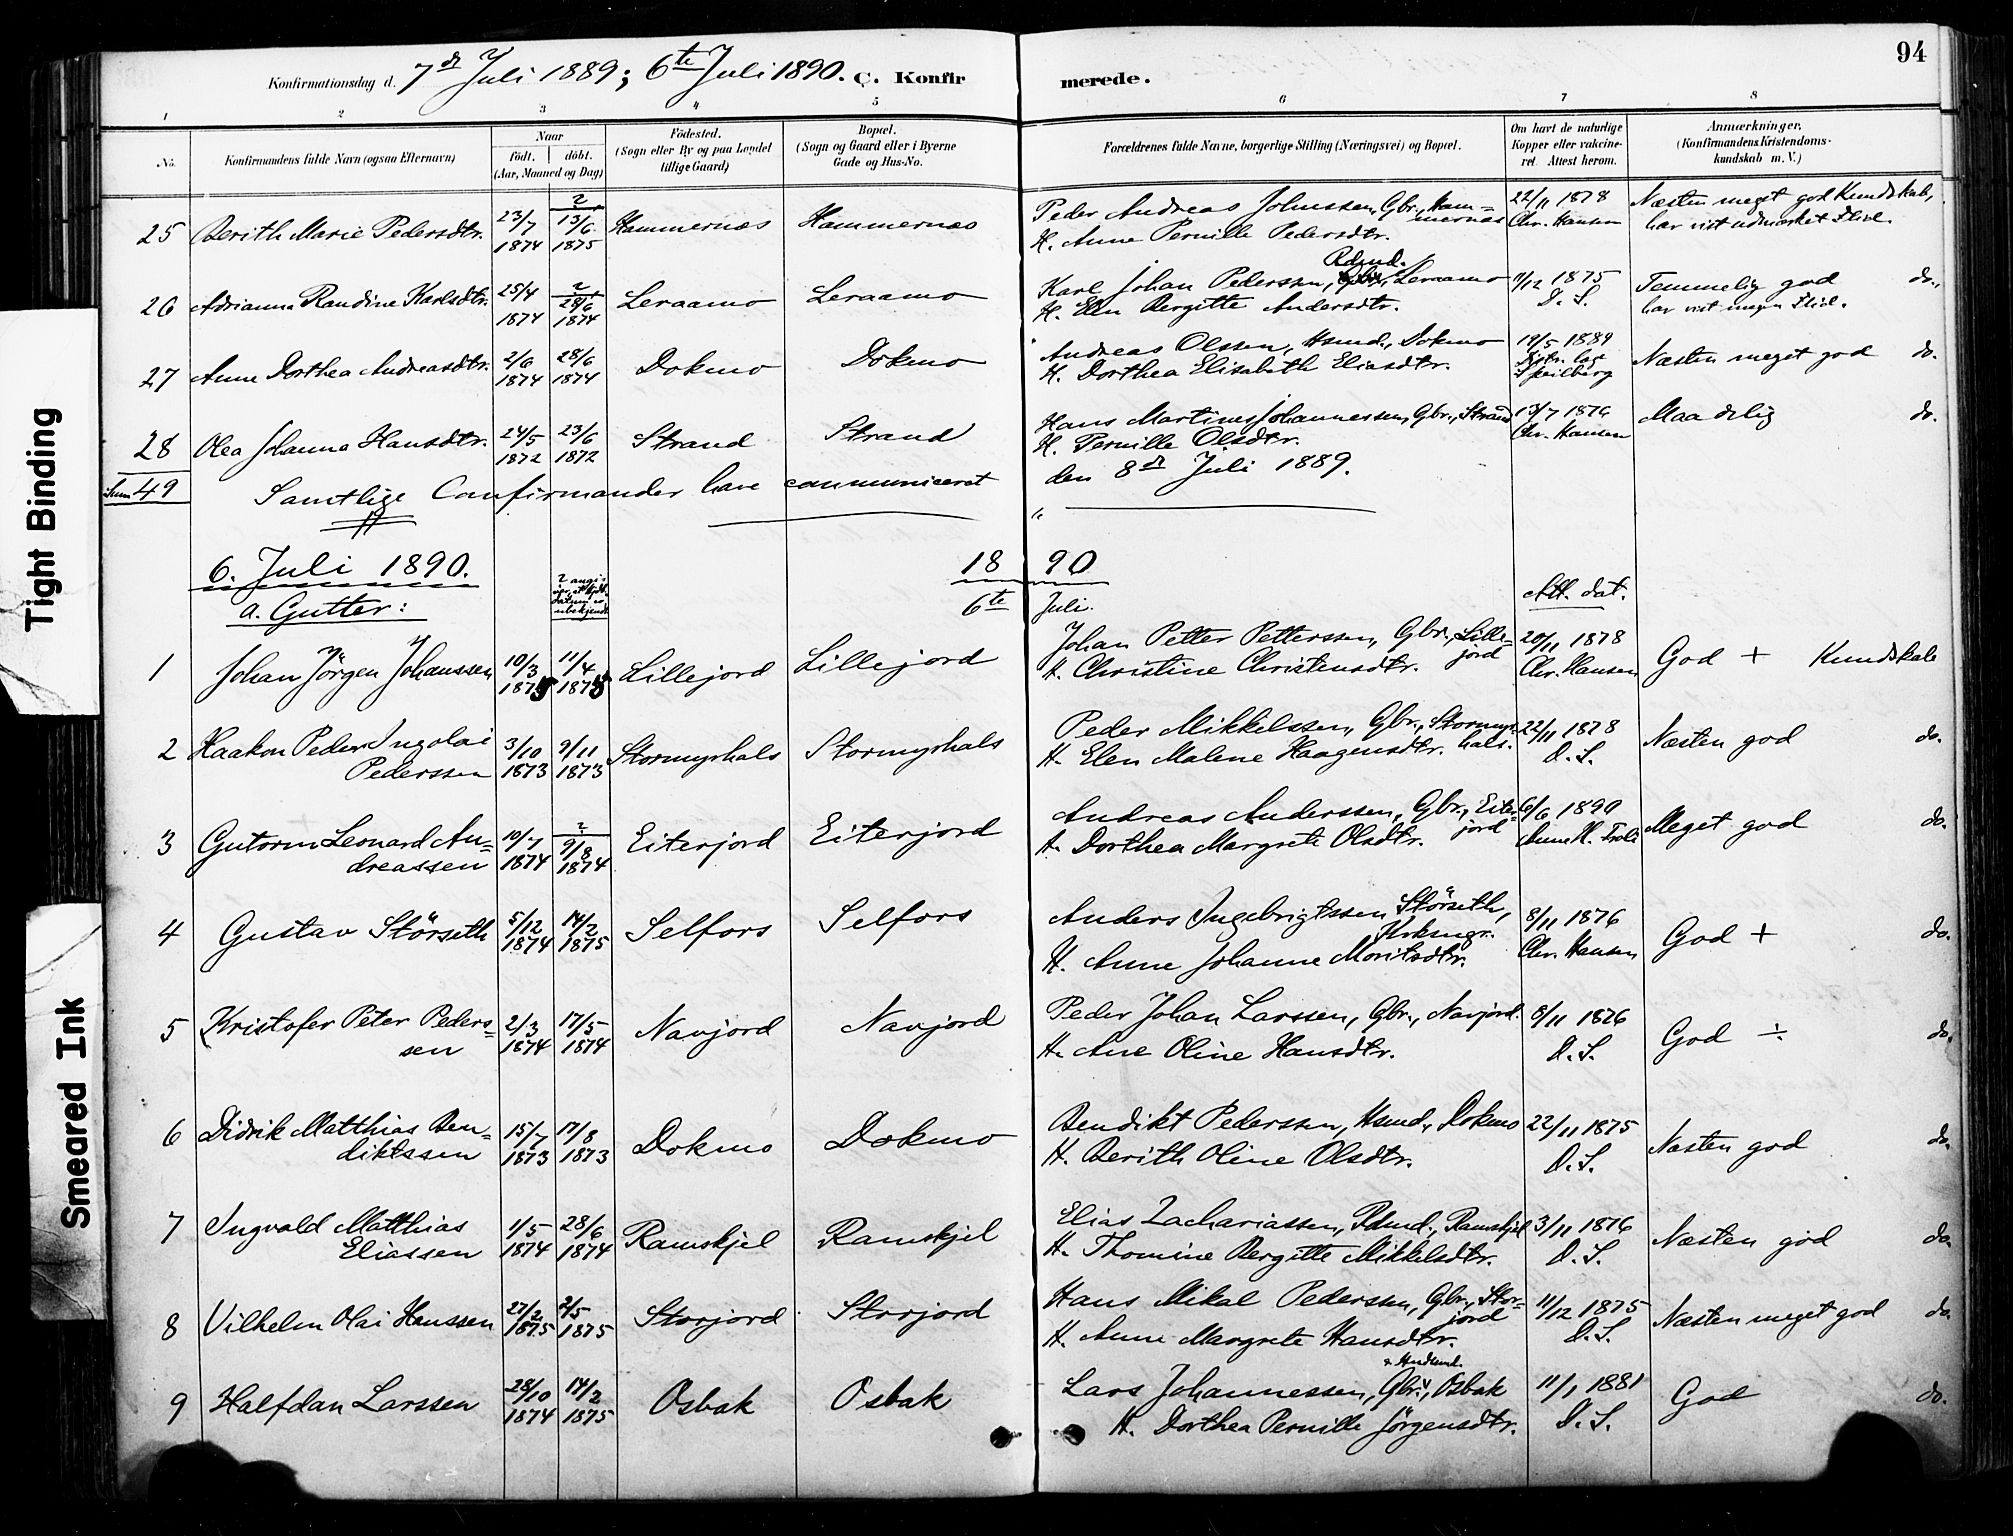 94
Konfirmationsdag d. 7de Juli 1889; 6te Juli 1890. C. Konfirmerede.
1 2 3 4 5 6 7 8
No. Konfirmandens fulde Navn (ogsaa Efternavn) Naar födt. döbt. (Aar, Maaned og Dag) Födested. (Sogn eller By og paa Landet tillige Gaard) Bopæl. (Sogn og Gaard eller i Byerne Gade og Hus-No. Forældrenes fulde Navne, borgerlige Stilling (Næringsvei) og Bopæl. Om havt de naturlige Kopper eller vakcineret. Attest herom. Anmærkninger. (Konfirmandens Kristendomskundskab m. V.)
25 Berith Marie Pedersdtr. 23/7 1874 2, 13/6 1875 Hammernæs Hammernæs Peder Andreas Johnssen, Gbr., Hammernæs 22/11 1878 Næsten meget god Kundskab,
H. Anne Pernille Pedersdtr. Chr. Hansen har vist udmærket Flid.
26 Adrianna Randine Karlsdtr. 25/4 1874 2, 28/6 1874 Leraamo Leraamo Karl Johan Pederssen, Rdmd. Leraamo 11/12 1875 Temmelig god do.,
H. Elen Bergitte Andersdtr. D. S. har vist megen Flid.
27 Anne Dorthea Andreasdtr. 2/6 1874 28/6 1874 Dokmo Dokmo Andreas Olssen, Hsmd., Dokmo 19/5 1889 Næsten meget god do.
H. Dorthea Elisabeth Eliasdtr. Distr. læg
28 Olea Johanna Hansdtr. 24/5 1872 23/6 1872 Strand Strand Hans Martinus Johannessen, Gbr., Strand 13/7 1876 Maadelig do.
H. Pernille Olsdtr. Chr. Hansen
Sum 49 Samtlige Confirmander have communiceret den 8de Juli 1889.
6. Juli 1890. 1890
a. Gutter: 6te Juli. Att. dat.
1 Johan Jörgen Johanssen 10/3 1875 11/4 1875 Lillejord Lillejord Johan Petter Petterssen, Gbr., Lillejord 20/11 1878 God + Kundskab
H. Christine Christensdtr. Chr. Hansen
2 Haakon Peder Ingolai Pederssen 3/10 1873 9/11 1873 Stormyrhals Stormyrhals Peder Mikkelssen, Gbr., Stormyrhals. 22/11 1878 Næsten god do.
H. Elen Malene Haagensdtr. D. S.
3 Gutorm Leonard Andreassen 10/7 1874 2, 9/8 1874 Eiterjord Eiterjord Andreas Anderssen, Gbr., Eiterjord 6/6 1890 Meget god do.
H. Dorthea Margrete Olsdtr.
4 Gustav Störseth 5/12 1874 14/2 1875 Selfors Selfors Anders Ingebrigtssen Störseth, 8/11 1876 God + do.
H. Anne Johanne Moritsdtr. Chr. Hansen
5 Kristofer Peter Pederssen 2/3 1874 17/5 1874 Navjord Navjord Peder Johan Larssen, Gbr., Navjord. 8/11 1876 God ÷ do.
H. Ane Oline Hansdtr. D. S.
6 Didrik Matthias Bendiktssen 15/7 1873 17/8 1873 Dokmo Dokmo Bendikt Pederssen, Hsmd., Dokmo 22/11 1875 Næsten god do.
H. Berith Oline Olsdtr. D. S.
7 Ingvald Matthias Eliassen 1/5 1874 28/6 1874 Ramskjel Ramskjel Elias Zachariassen, Rdmd., Ramskjel 3/11 1876 Næsten god do.
H. Thomine Bergitte Mikkelsdtr. D. S.
8 Vilhelm Olai Hanssen 27/2 1875 2/5 1875 Storjord Storjord Hans Mikal Pederssen, Gbr., Storjord 11/12 1875 Næsten meget god do.
H. Anne Margrete Hansdtr. D. S.
9 Halfdan Larssen 28/10 1874 14/2 1875 Osbak Osbak Lars Johannessen, Gbr., Osbak 11/1 1881 God do.
H. Dorthea Pernille Jörgensdtr. D. S.
Tight Binding
Smeared Ink